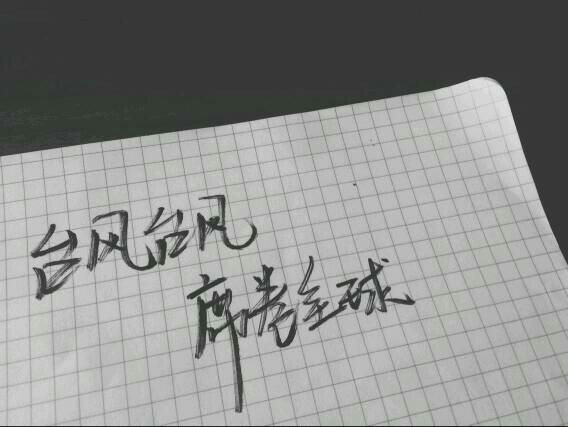 台风台风
席卷全球